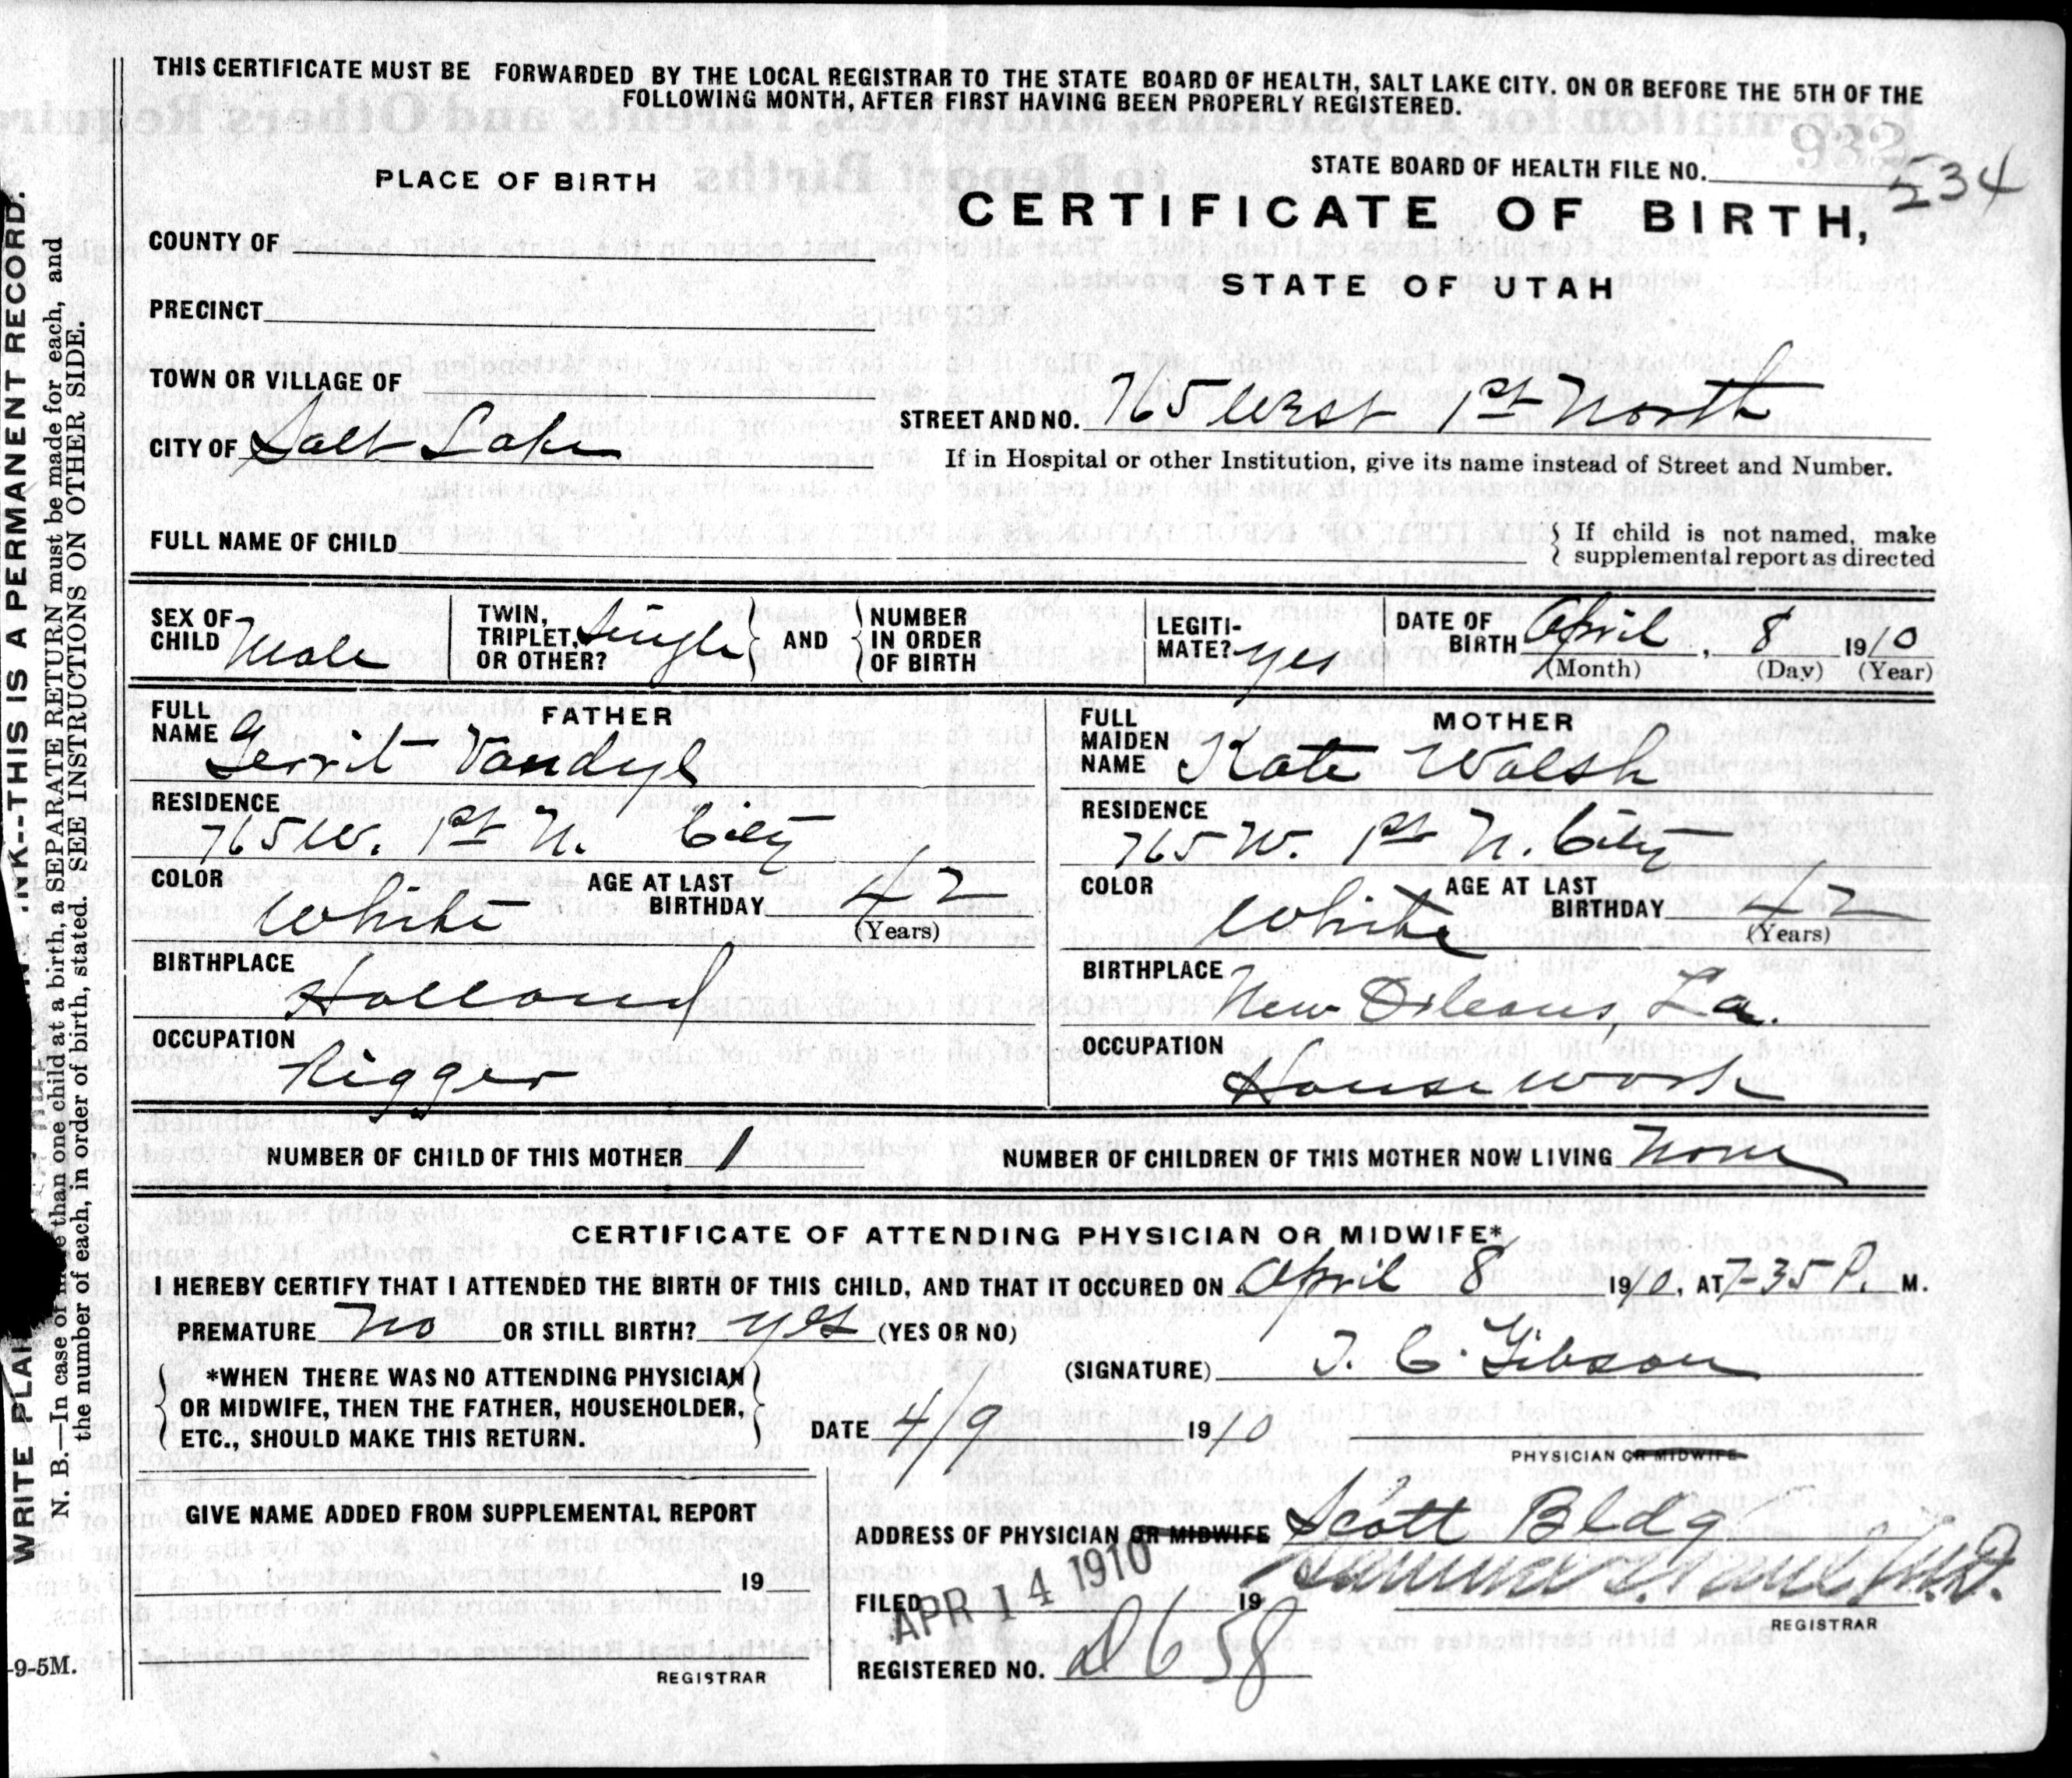 THIS CERTIFICATE MUST BE FORWARDED BY THE LOCAL REGISTRAR TO THE STATE BOARD OF HEALTH, SALT LAKE CITY. ON OR BEFORE THE 5TH OF THE
FOLLOWING MONTH, AFTER FIRST HAVING BEEN PROPERLY REGISTERED.
PLACE OF BIRTH
STATE BOARD OF HEALTH FILE NO. 534
CERTIFICATE OF BIRTH,
STATE OF UTAH
COUNTY OF
PRECINCT
TOWN OR VILLAGE OF
CITY OF Salt Lake
STREET AND NO. 765 West 1st North
If in Hospital or other Institution, give its name instead of Street and Number.
FULL NAME OF CHILD
If child is not named, make
supplemental report as directed
SEX OF
CHILD Male
TWIN,
TRIPLET, Single
OR OTHER?
AND
NUMBER
IN ORDER
OF BIRTH
LEGITI-
MATE? yes
DATE OF
BIRTH April, 8 1910
(Month) (Day) (Year)
FATHER
FULL
NAME Gerrit Vandyl
RESIDENCE
765 W. 1st N. City
COLOR
White
AGE AT LAST
BIRTHDAY 42
(Years)
BIRTHPLACE
Holland
OCCUPATION
Rigger
MOTHER
FULL
MAIDEN
NAME Kate Walsh
RESIDENCE
765 W. 1st N. City
COLOR
White
AGE AT LAST
BIRTHDAY 42
(Years)
BIRTHPLACE
New Orleans, La.
OCCUPATION
Housework
NUMBER OF CHILD OF THIS MOTHER 1
NUMBER OF CHILDREN OF THIS MOTHER NOW LIVING None
CERTIFICATE OF ATTENDING PHYSICIAN OR MIDWIFE*
I HEREBY CERTIFY THAT I ATTENDED THE BIRTH OF THIS CHILD, AND THAT IT OCCURED ON April 8 1910, AT 7-35 P. M.
PREMATURE no OR STILL BIRTH? yes (YES OR NO)
*WHEN THERE WAS NO ATTENDING PHYSICIAN
OR MIDWIFE, THEN THE FATHER, HOUSEHOLDER,
ETC., SHOULD MAKE THIS RETURN.
(SIGNATURE) J. C. Gibson
DATE 4/9 1910
PHYSICIAN OR MIDWIFE
GIVE NAME ADDED FROM SUPPLEMENTAL REPORT
19
REGISTRAR
ADDRESS OF PHYSICIAN OR MIDWIFE Scott Bldg
FILED APR 14 1910 19
M.D.
REGISTRAR
REGISTERED NO. D658
WRITE PLAI INK--THIS IS A PERMANENT RECORD.
N. B.—In case of more than one child at a birth, a SEPARATE RETURN must be made for each, and
the number of each, in order of birth, stated. SEE INSTRUCTIONS ON OTHER SIDE.
-9-5M.